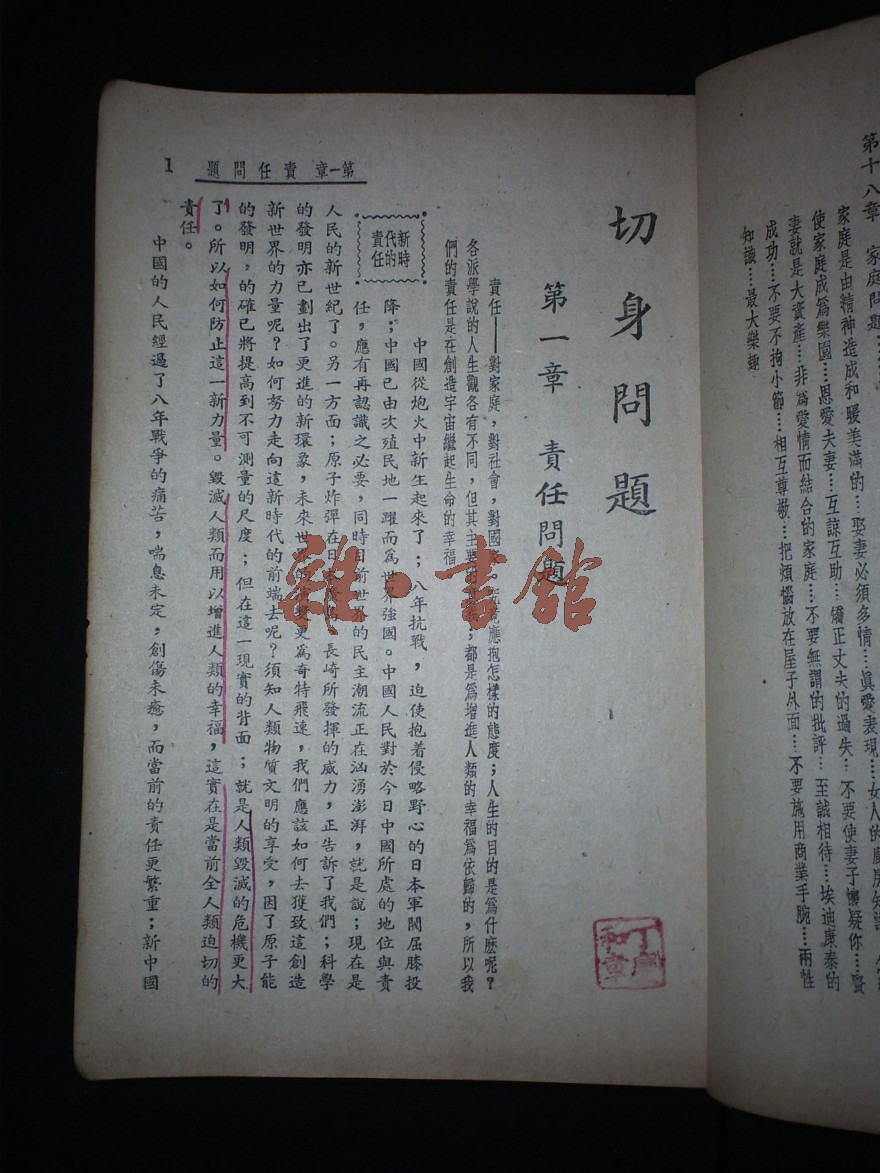 第十八章 家庭問題
家庭是由精神造成和暖美滿的…娶妻必須多情…眞愛表現……女人的廚房知識
使家庭成爲樂園…恩愛夫妻…互諒互助…矯正丈夫的過失…不要使妻子懷疑你…賢
妻就是大資產…非爲愛情而結合的家庭…不要無謂的批評…至誠相待…埃迪康泰的
成功…不要不拘小節…相互尊敬…把煩惱放在屋子外面…不要施用商業手腕…兩性
知識…最大樂趣
第一章 責任問題
1
切身問題
第一章 責任問題
責任——對家庭,對社會,對國家。究竟應抱怎樣的態度;人生的目的是爲什麽呢?
各派學說的人生觀各有不同,但其主要的 ;都是爲增進人類的幸福爲依歸的,所以我
們的責任是在創造宇宙繼起生命的幸福
新時代的責任
中國從炮火中新生起來了;八年抗戰,迫使抱着侵略野心的日本軍閥屈膝投
降;中國已由次殖民地一躍而爲世界強國。中國人民對於今日中國所處的地位與責
任,應有再認識之必要,同時目前世界的民主潮流正在汹湧澎湃,就是說;現在是
人民的新世紀了。另一方面;原子炸彈在日本廣島,長崎所發揮的威力,正告訴了我們;科學
的發明亦已劃出了更進的新環象,未來世界的 變更爲奇特飛速,我們應該如何去獲致這創造
新世界的力量呢?如何努力走向這新時代的前端去呢?須知人類物質文明的享受,因了原子能
的發明,的確已將提高到不可測量的尺度;但在這一現實的背面;就是人類毀滅的危機更大
了。所以如何防止這一新力量。毀滅人類而用以增進人類的幸福,這實在是當前全人類迫切的
責任。
中國的人民經過了八年戰爭的痛苦,喘息未定,創傷未癒,而當前的責任更繁重;新中國
雜·書館
和章